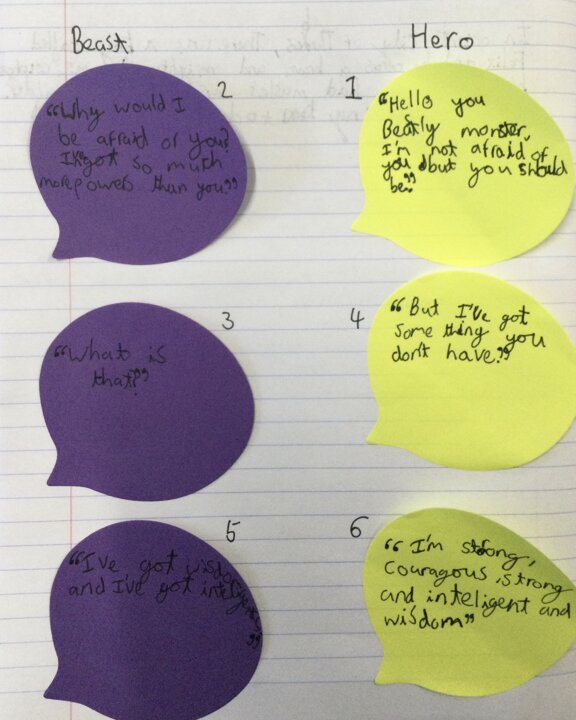 Beast.
Hero
2
"Why would I
be afraid of you?
I've got so much
more powers than you."
1
"Hello you
Beastly monster,
I'm not afraid of
you but you should
be."
3
"What is
that?"
4
"But I've got
some thing you
don't have."
5
"I've got wisdom
and I've got
"
6
"I'm strong,
couragous, strong
and inteligent and
wisdom"